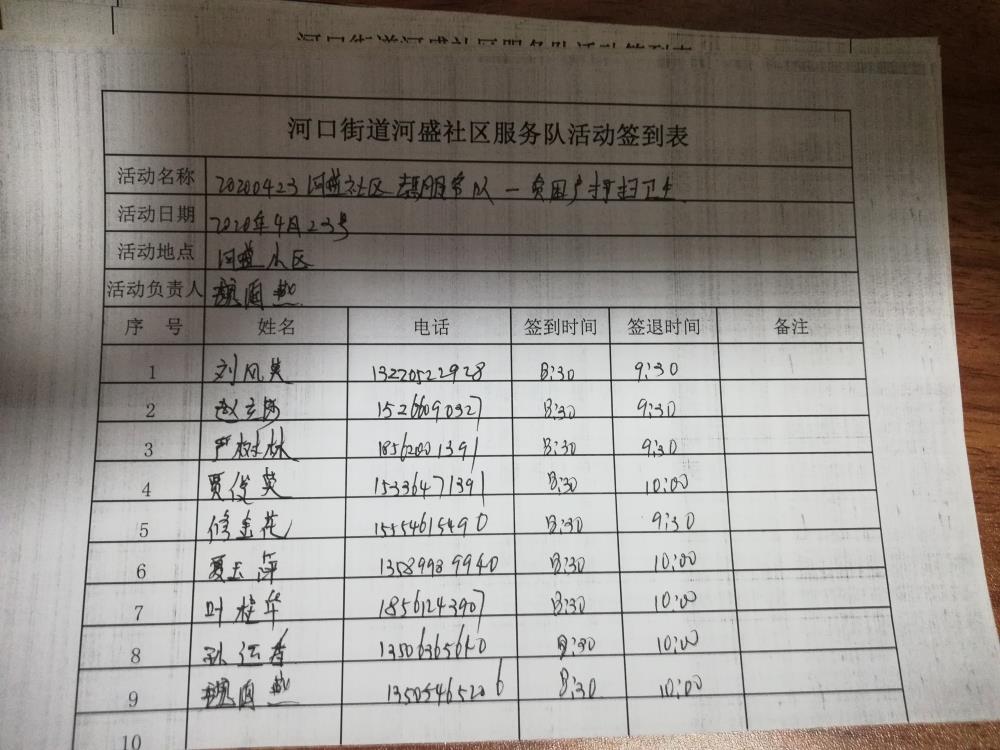 河口街道河盛社区服务队活动签到表
活动名称 20200423河盛社区志愿服务队一贫困户打扫卫生
活动日期 2020年4月23号
活动地点 河盛小区
活动负责人
序 号 姓名 电话 签到时间 签退时间 备注
1 刘凤英 13220522928 8:30 9:30
2 赵 15266090327 8:30 9:30
3 严树林 18562001391 8:30 9:30
4 贾俊英 15336471391 8:30 10:00
5 修金花 15554615490 8:30 9:30
6 夏玉萍 13589989940 8:30 10:00
7 叶桂华 18561243907 8:30 10:00
8 孙运香 13506365640 8:30 10:00
9 13505465206 8:30 10:00
10